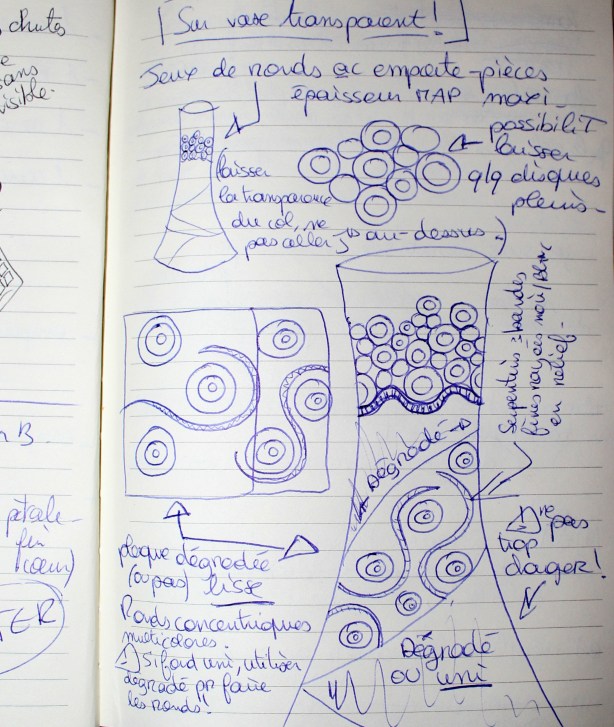 chutes
sans
visible.
Sur vase transparent!
Jeux de ronds ac emporte-pièces
épaisseur MAP maxi.
possibilit
laisser
q/q disques
pleins.
laisser
la transparence
du col, ne
pas coller jus au-dessus.)
Serpentins : bandes
fines rayées noir/blanc
en relief.
Dégradé
⚠ ne pas
trop
charger!
plaque dégradée
(ou pas) lisse
Ronds concentriques
multicolores.
⚠ Si fond uni, utiliser
dégradé pr faire
les ronds!
Dégradé
ou uni
n B.
pétale
coeur)
TER